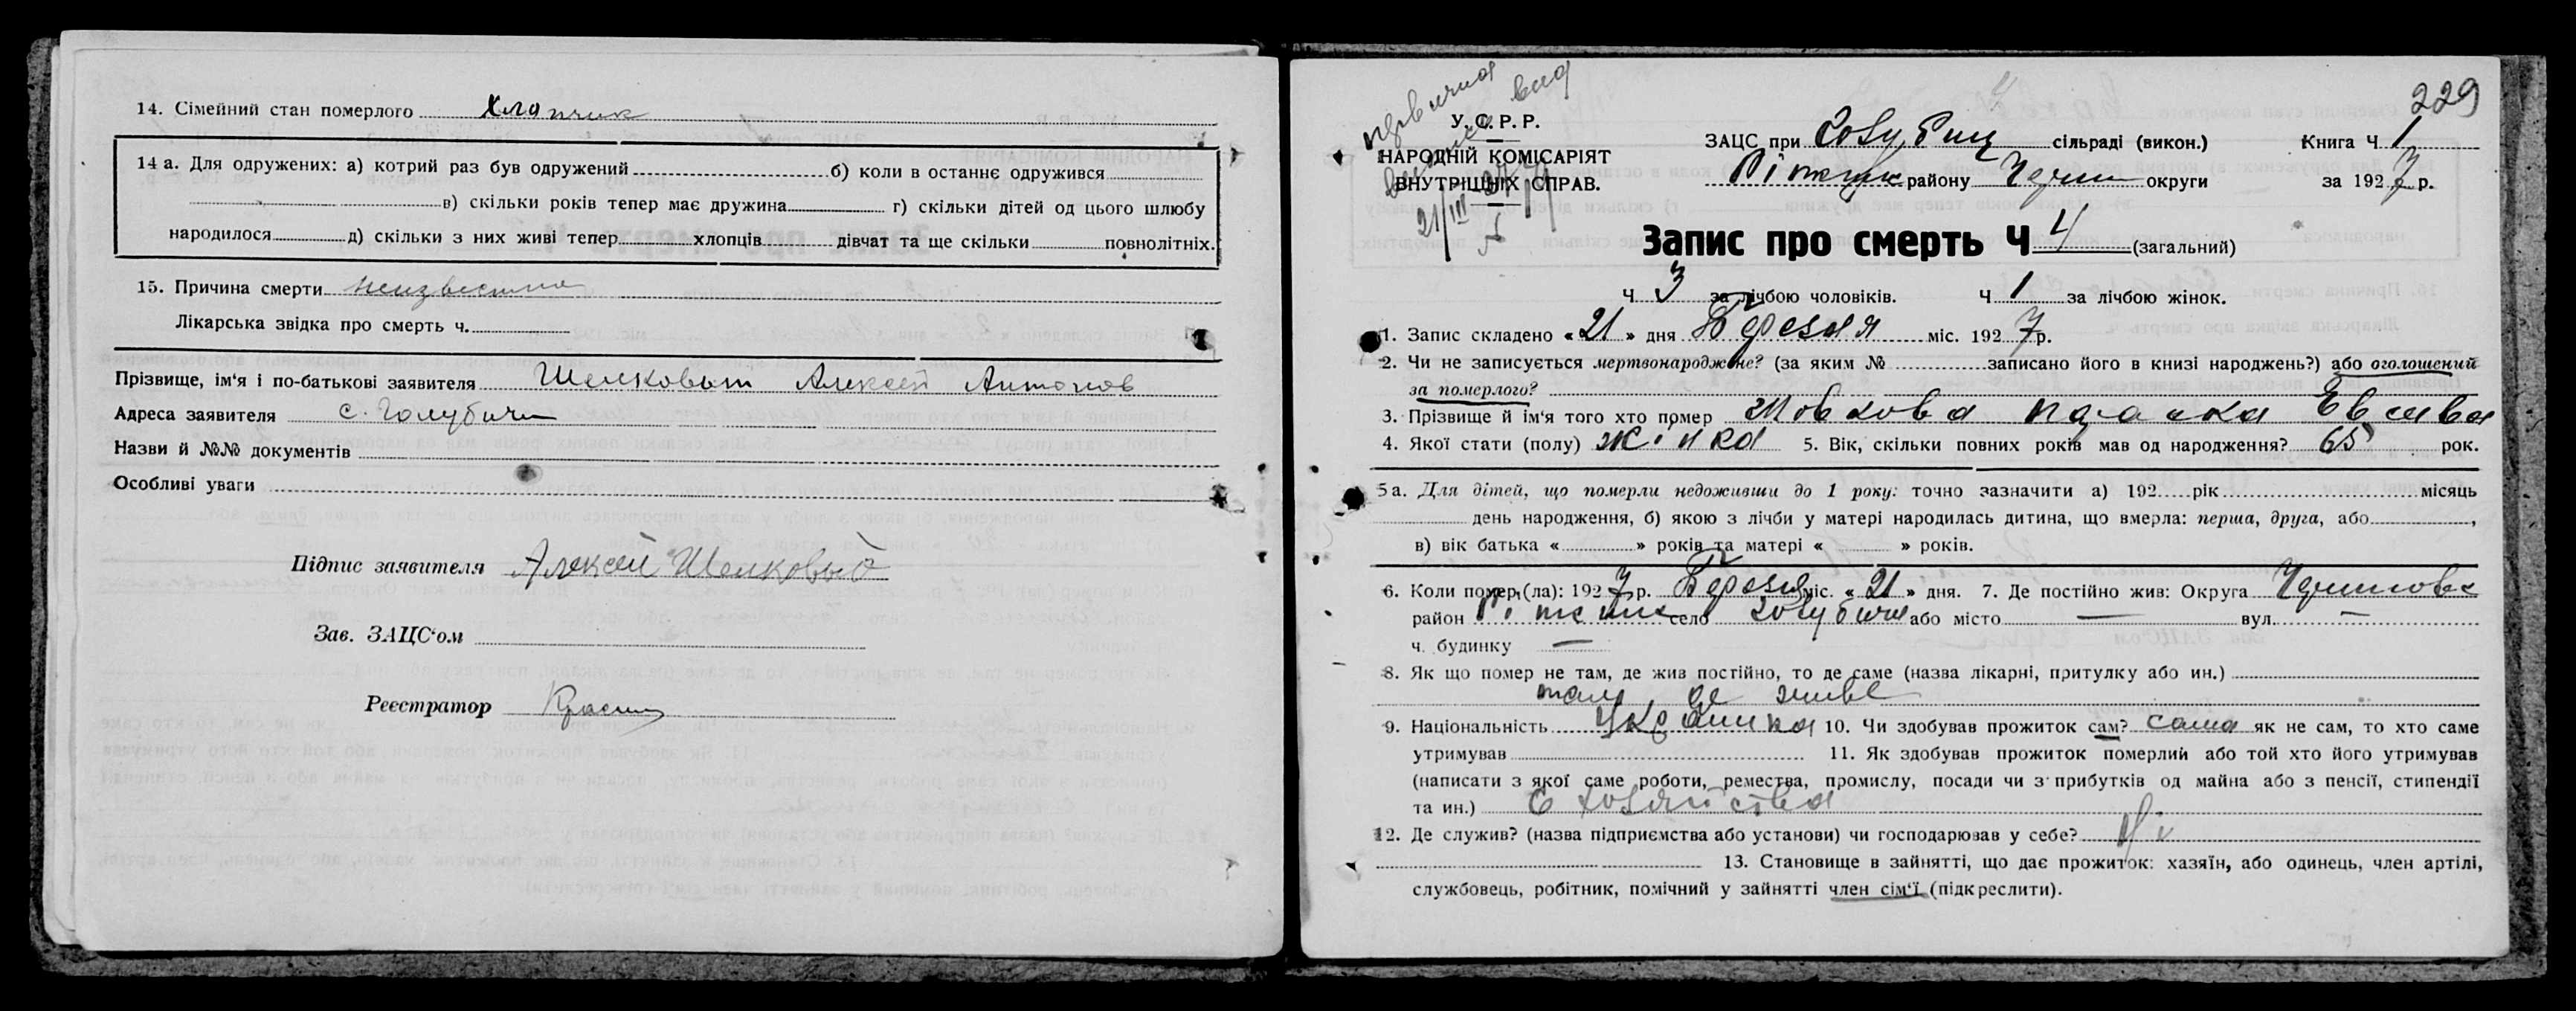 14. Сімейний стан померлого хлопчик
14 а. Для одружених: а) котрий раз був одружений б) коли в останнє одружився
в) скільки років тепер має дружина г) скільки дітей од цього шлюбу
народилося д) скільки з них живі тепер хлопців дівчат та ще скільки повнолітніх.
15. Причина смерти неизвестна
Лікарська звідка про смерть ч.
Прізвище, ім'я і по-батькові заявителя Шелковый Алексей Антонов
Адреса заявителя с. Голубичи
Назви й №№ документів
Особливі уваги
Підпис заявителя Алексей Шелковый
Зав. ЗАЦС'ом
Реєстратор
229
У. С. Р. Р.
НАРОДНІЙ КОМІСАРІЯТ
ВНУТРІШНІХ СПРАВ.
21/III
ЗАЦС при Голубиц сільраді (викон.) Книга Ч 1
Ріпкинс району Черни округи за 1927 р.
Запис про смерть Ч 4 (загальний)
Ч 3 за лічбою чоловіків. Ч 1 за лічбою жінок.
1. Запис складено «21» дня Березня міс. 1927 р.
2. Чи не записується мертвонароджене? (за яким № записано його в книзі народжень?) або оголошений
за померлого?
3. Прізвище й ім'я того хто помер Шовкова
4. Якої стати (полу) жінка 5. Вік, скільки повних років мав од народження? 65 рок.
5 а. Для дітей, що померли недоживши до 1 року: точно зазначити а) 192 рік місяць
день народження, б) якою з лічби у матері народилась дитина, що вмерла: перша, друга, або ,
в) вік батька « » років та матері « » років.
6. Коли помер (ла): 1927 р. Березня міс. «21» дня. 7. Де постійно жив: Округа Чернигове
район Ріпкинс село Голубичи або місто — вул. —
ч. будинку —
8. Як що помер не там, де жив постійно, то де саме (назва лікарні, притулку або ин.)
там де живе
9. Національність Українка 10. Чи здобував прожиток сам? сама як не сам, то хто саме
утримував 11. Як здобував прожиток померлий або той хто його утримував
(написати з якої саме роботи, ремества, промислу, посади чи з прибутків од майна або з пенсії, стипендії
та ин.) С хозяйства
12. Де служив? (назва підприємства або установи) чи господарював у себе? Ні
13. Становище в зайнятті, що дає прожиток: хазяїн, або одинець, член артілі,
службовець, робітник, помічний у зайнятті член сім'ї (підкреслити).